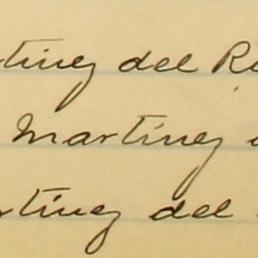 tinez del R
Martinez
rtinez del